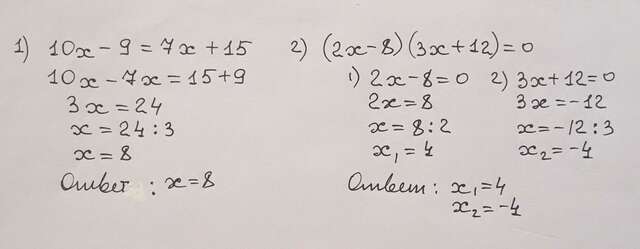 1) 10x - 9 = 7x + 15
10x - 7x = 15 + 9
3x = 24
x = 24 : 3
x = 8
Ответ : x = 8
2) (2x - 8)(3x + 12) = 0
1) 2x - 8 = 0 2) 3x + 12 = 0
2x = 8 3x = -12
x = 8 : 2 x = -12 : 3
x₁ = 4 x₂ = -4
Ответ : x₁ = 4
x₂ = -4